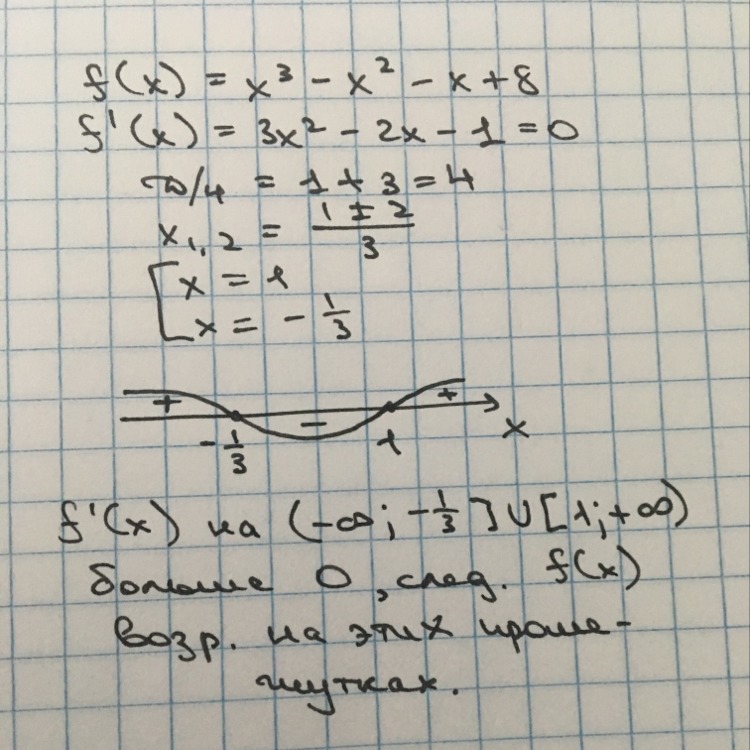 f(x) = x³ - x² - x + 8
f'(x) = 3x² - 2x - 1 = 0
D/4 = 1 + 3 = 4
x₁,₂ = (1 ± 2)/3
[ x = 1
x = - 1/3
+ - + 
-1/3 1 x
f'(x) на (-∞; -1/3] ∪ [1; +∞)
больше 0, след. f(x)
возр. на этих проме-
жутках.